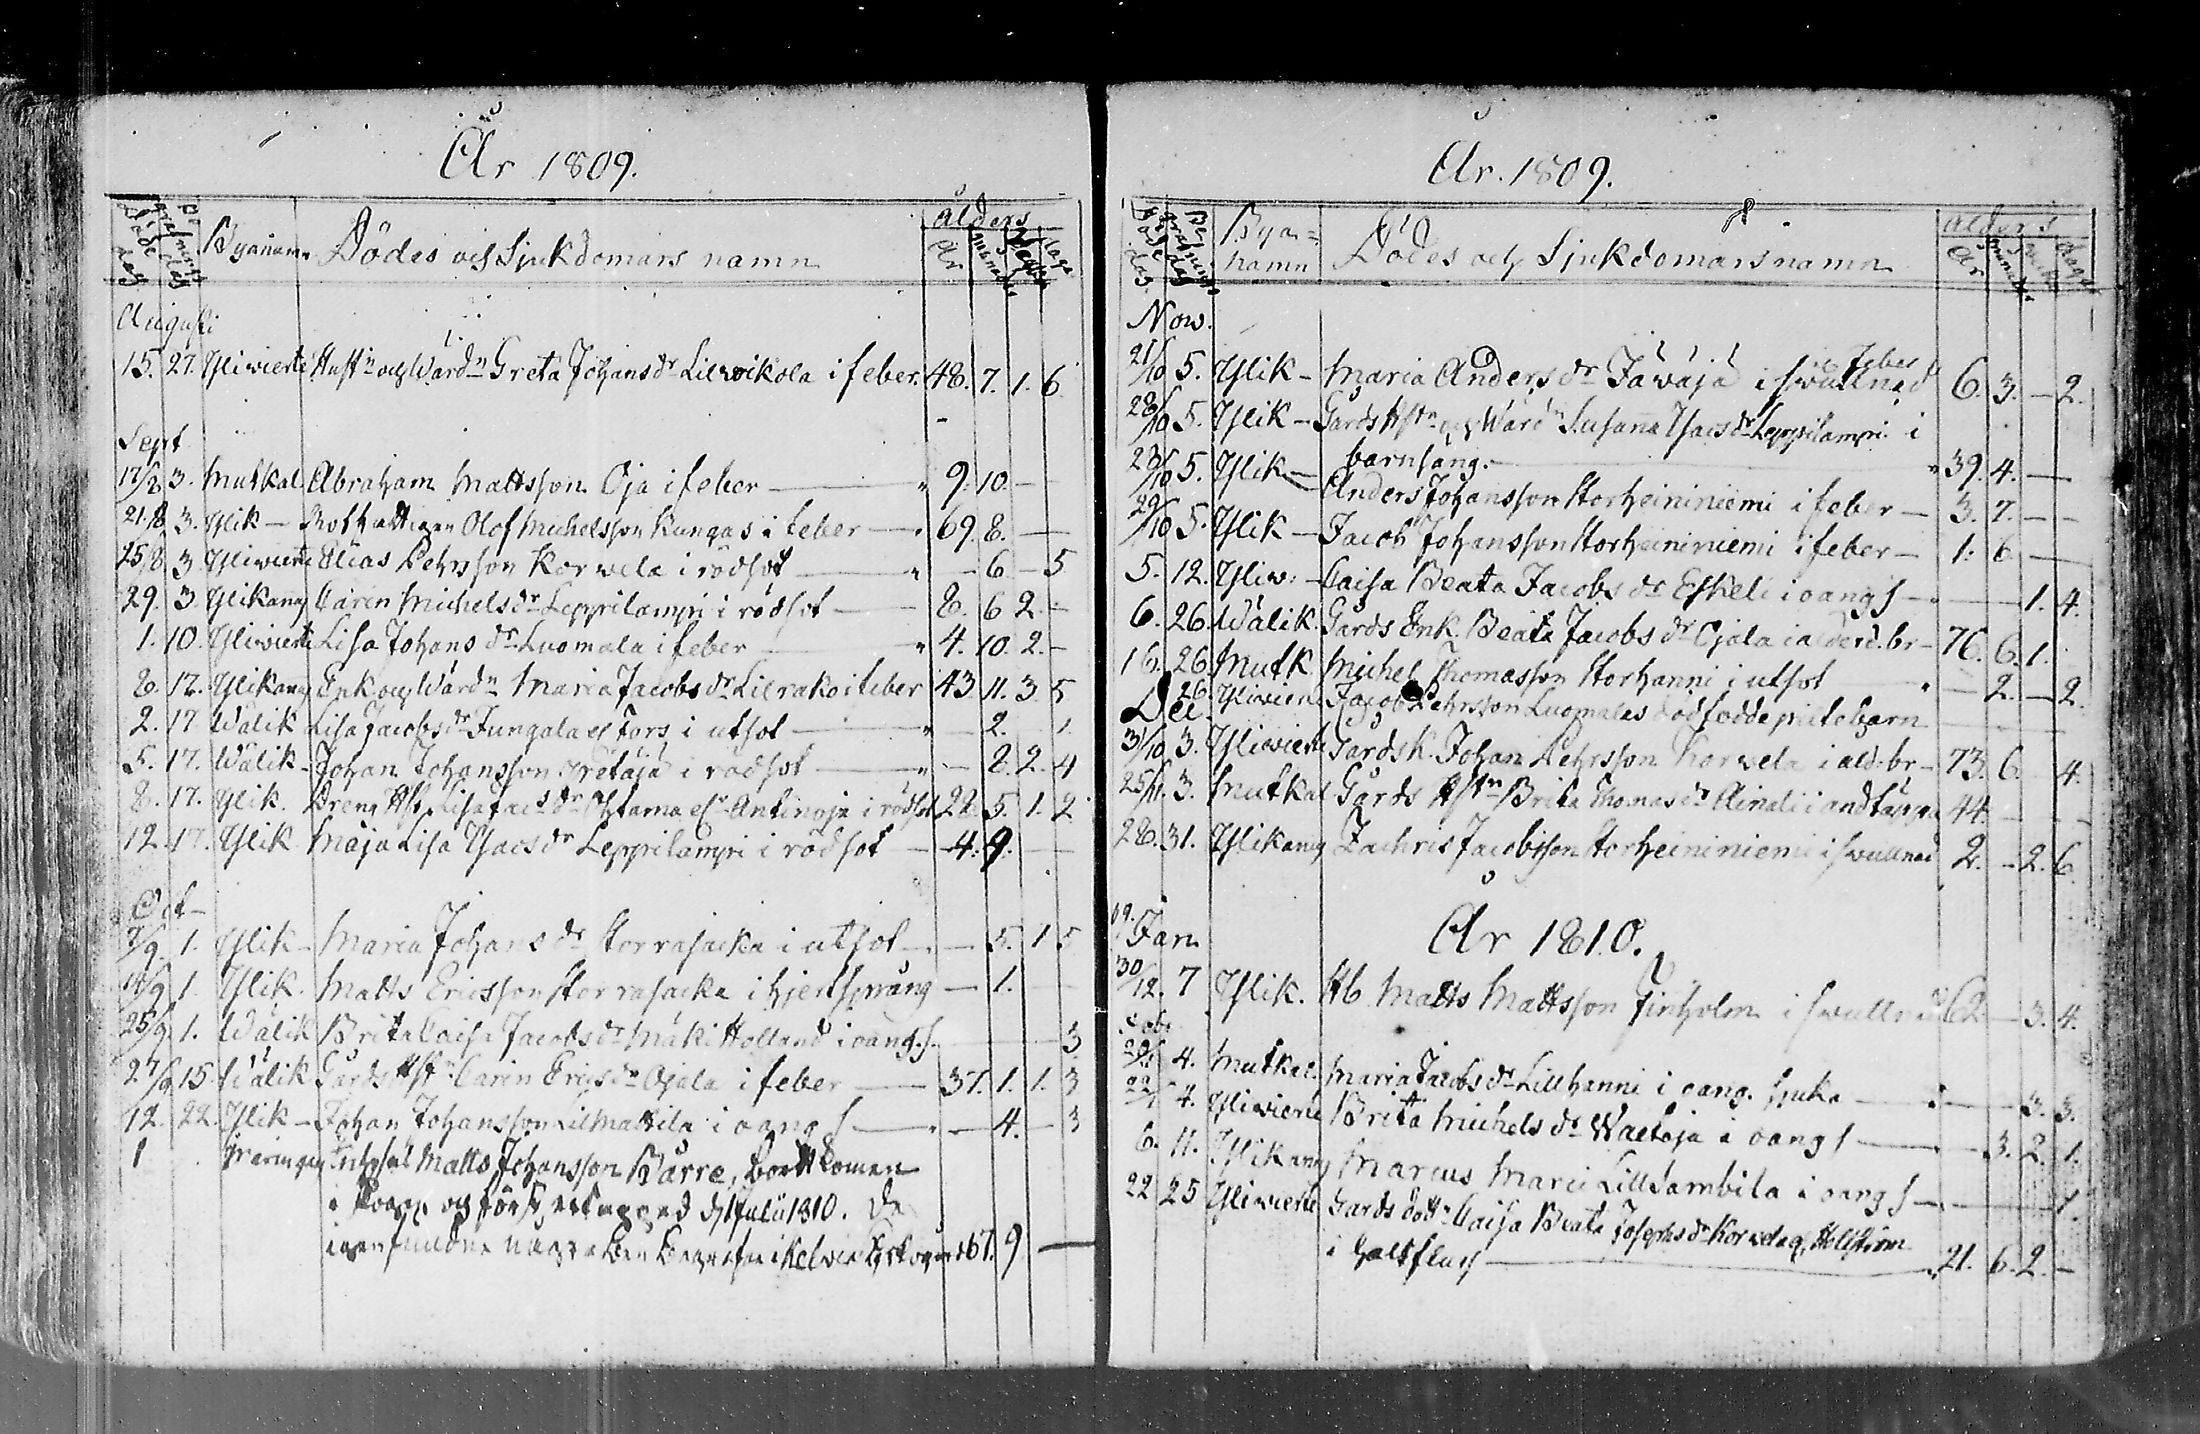 År 1809.
Döde dag Begrafnings dag Byanamn Dödes och Sjukdomars namn ålders År månader dagar
Augusti
15. 27. Yliwierte Hust:n och Wärd:n Greta Johansdr Lilwikola i feber. 48. 7. 1. 6
Sept
17/8 3. Mutkal Abraham Mattsson Oja i feber — 9. 10. —
21/8 3. Ylik — Rothjon Olof Michelsson Kangas i feber — 69. 8. —
25/8 3 Yliwierte Elias Pehrsson Korwela i rödsot — " — 6 — 5
29. 3. Ylikang Caren Michelsdr Leppilampi i rödsot — 8. 6 2. —
1. 10. Yliwierte Lisa Johansdr Luomala i feber — " 4. 10. 2. —
8. 12. Ylikang Enk och Wärdn Maria Jacobsdr Lilrasko i feber 43 11. 3. 5
2. 17 Wälik Lisa Jacobsdr Jungala el Fors i utsot — " — 2. 1.
5. 17. Wälik — Johan Johansson Yretäjä i rödsot — " — 8. 2. 4
8. 17. Ylik. Dreng Hst. Lisa Jacsdr Ahtama el. Antinoja i rödsot 28. 5. 1. 2
12. 17. Ylik Maja Lisa Isacsdr Leppilampi i rödsot — 4. 9.
Oct —
7/9. 1. Ylik — Maria Johansdr Storrasacka i utsot — — 5. 1 5
14/9 1. Ylik. Matts Ericsson Storrasacka i hjertsprång — 1.
25/9 1. Wälik Brita Caisa Jacobsdr Mäki Holland i oang. s. — 3
27/9 15. Wälik Gårds Hst: Carin Ericsdr Ojala i feber — 37. 1. 1. 3
12. 22. Ylik — Johan Johansson Lilmattila i oang s — — 4. — 3
1 Inhyses Matts Johansson Barre, bortkomen
i skogen och förs d. 1 Julii 1810. De
igenfundne några Ben Begrofne i skogen 67. 9 —
År. 1809.
Döde dag Begrafnings dag Bya=namn Dödes och Sjukdomars namn ålders År månader dagar
Now.
21/10 5. Ylik — Maria Andersdr Jäwäjä i feber swullnad 6. 3. — 2.
28/10 5. Ylik — Gårds Hstn och Wärdn Susanna Isacsdr Leppilampi i
barnsäng. — " 39. 4. —
23/10 5. Ylik — Anders Johansson Storheininiemi i feber — 3. 7. — —
29/10 5. Ylik — Jacob Johansson Storheininiemi i feber — 1. 6 —
5. 12. Yliw: — Caisa Beata Jacobsdr Eskeli i oang s — 1. 4.
6. 26. Wälik. Gårds Enk. Beata Jacobsdr Ojala i ålderd. br — 76. 6. 1.
16. 26. Mutk Michel Thomasson Storhanni i utsot — 2. — 2.
26. Yliwierte Jacob Pehrsson Luomalas dödfödde piltebarn
Dec.
31/10 3. Yliwierte Gårdsk. Johan Pehrsson Korwela i åld. br — 73. 6. 4.
25/11. 3. Mutkal Gårds Hstn Brita Thomasdr Ainali i andtäppa 44
28. 31. Ylikang Zachris Jacobsson Storheininiemi i swullnad 2. — 2. 6.
09.
Jan År 1810.
30/12. 7 Ylik. Hb Matts Mattsson Finholm i swullnad 62 — 3. 4.
Febr.
29/1 4. Mutkal. Maria Jacobsdr Lillhanni i oang. sjuka — 3. 3.
22/1 4. Yliwierte Brita Michelsdr Waetoja i oang s — 3. 2. 1.
6. 11. Ylikang Marcus Marci Lilldambila i oang s — 1.
22 25 Yliwierte Gårds dottr Caisa Beata Josephsdr Korwela och Hellström
i Halsfluss — 21. 6. 2. —